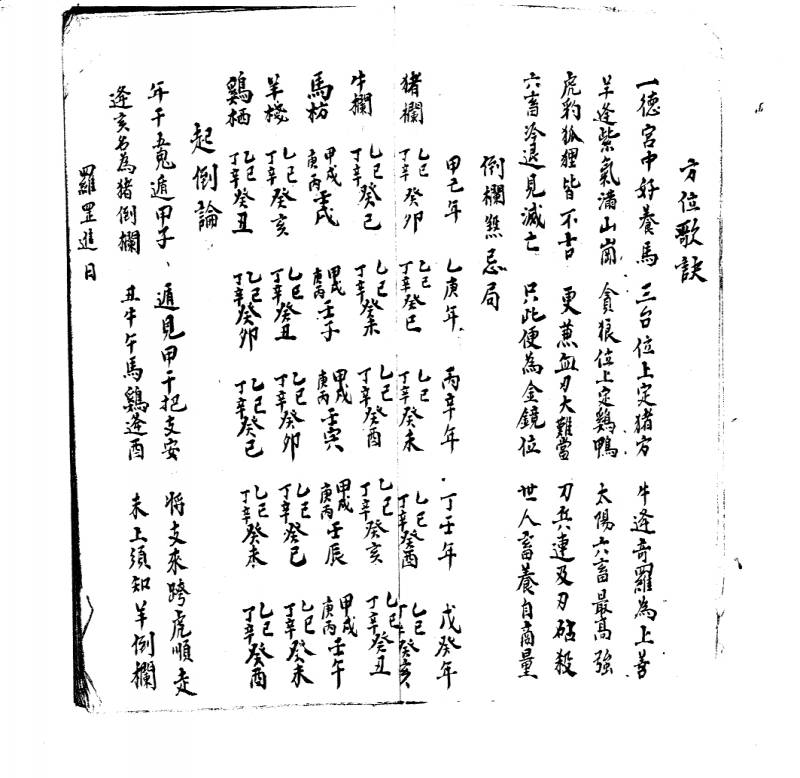 方位歌訣
一德宮中好養馬 三台位上定猪方 牛逢奇羅為上善
羊逢紫氣滿山崗 貪狼位上定鷄鴨 太陽六畜最高強
虎豹狐狸皆不吉 更兼血刃大難當 刀兵連及刃砧殺
六畜冷退見滅亡 只此便為金鏡位 世人畜養自商量
倒欄煞忌局
甲己年 乙庚年 丙辛年 丁壬年 戊癸年
猪欄 乙己丁辛癸卯 乙己丁辛癸巳 乙己丁辛癸未 乙己丁辛癸酉 乙己丁辛癸亥
牛欄 乙己丁辛癸巳 乙己丁辛癸未 乙己丁辛癸酉 乙己丁辛癸亥 乙己丁辛癸丑
馬枋 甲戊庚丙壬戌 甲戊庚丙壬子 甲戊庚丙壬寅 甲戊庚丙壬辰 甲戊庚丙壬午
羊棧 乙己丁辛癸亥 乙己丁辛癸丑 乙己丁辛癸卯 乙己丁辛癸巳 乙己丁辛癸未
鷄栖 乙己丁辛癸丑 乙己丁辛癸卯 乙己丁辛癸巳 乙己丁辛癸未 乙己丁辛癸酉
起倒論
年干五鬼遁甲子 遁見甲干把支安 將支來跨虎順走
逢亥名為猪倒欄 丑牛午馬鷄逢酉 未上須知羊倒欄
羅罡進日